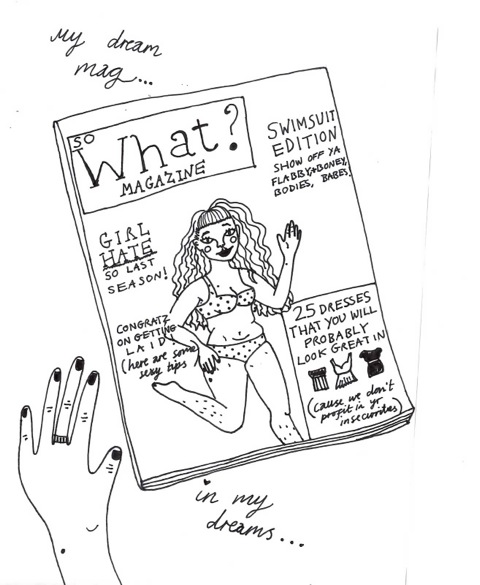 My dream
mag...
SO
What?
MAGAZINE
SWIMSUIT
EDITION
SHOW OFF YA
FLABBY,+BONEY,
BODIES, BABES!
GIRL
HATE
SO LAST
SEASON!
CONGRATZ
ON GETTING
LAID
(here are some
sexy tips
25 DRESSES
THAT YOU WILL
PROBABLY
LOOK GREAT IN
(cause we don't
profit in yr
insecurities)
in my
dreams...